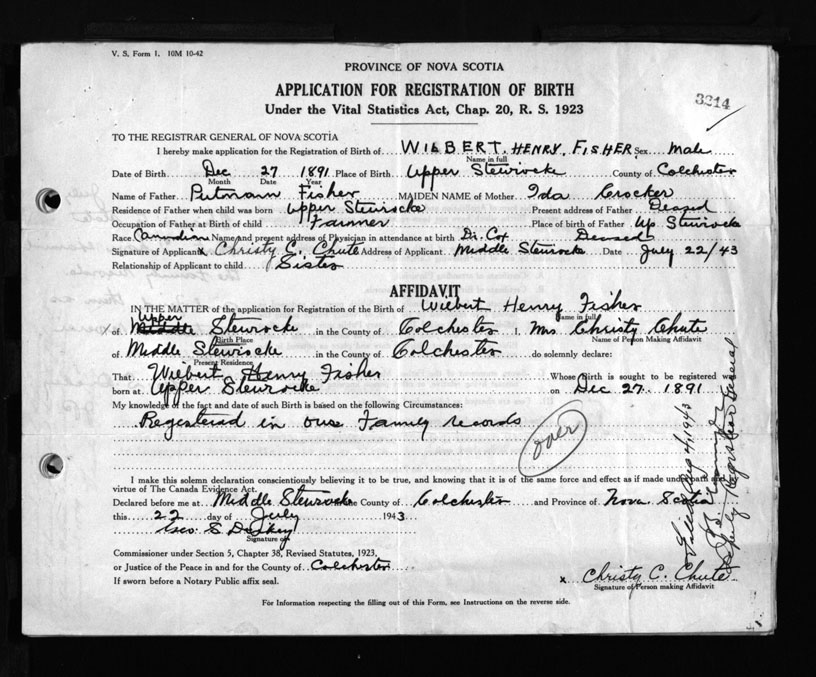 V. S. Form 1. 10M 10-42
PROVINCE OF NOVA SCOTIA
APPLICATION FOR REGISTRATION OF BIRTH
Under the Vital Statistics Act, Chap. 20, R. S. 1923
3214
TO THE REGISTRAR GENERAL OF NOVA SCOTIA
I hereby make application for the Registration of Birth of WILBERT. HENRY. FISHER. Sex Male
Name in full
Date of Birth Dec 27 1891 Place of Birth Upper Stewiacke County of Colchester
Month Date Year
Name of Father Putmann Fisher MAIDEN NAME of Mother Ida Crocker
Residence of Father when child was born Upper Stewiacke Present address of Father
Occupation of Father at Birth of child Farmer Place of birth of Father Up Stewiacke
Race Canadian Name and present address of Physician in attendance at birth Dr. Cox
Signature of Applicant x Christy C. Chute Address of Applicant Middle Stewiacke Date July 22/43
Relationship of Applicant to child Sister
AFFIDAVIT
IN THE MATTER of the application for Registration of the Birth of Wilbert Henry Fisher
Name in full
Upper
x of Middle Stewiacke in the County of Colchester I, Mrs Christy Chute
Birth Place Name of Person Making Affidavit
of Middle Stewiacke in the County of Colchester do solemnly declare:
Present Residence
That Wilbert Henry Fisher Whose Birth is sought to be registered was
born at Upper Stewiacke on Dec 27. 1891
My knowledge of the fact and date of such Birth is based on the following Circumstances:
Registered in our Family records
over
I make this solemn declaration conscientiously believing it to be true, and knowing that it is of the same force and effect as if made under oath and
virtue of The Canada Evidence Act.
Declared before me at Middle Stewiacke County of Colchester and Province of Nova Scotia
this 22 day of July 1943
Geo. S
Signature of
Commissioner under Section 5, Chapter 38, Revised Statutes, 1923,
or Justice of the Peace in and for the County of Colchester
If sworn before a Notary Public affix seal.
x Christy C. Chute
Signature of Person making Affidavit
For Information respecting the filling out of this Form, see Instructions on the reverse side.
Filed Aug 4, 1943
Deputy Registrar General